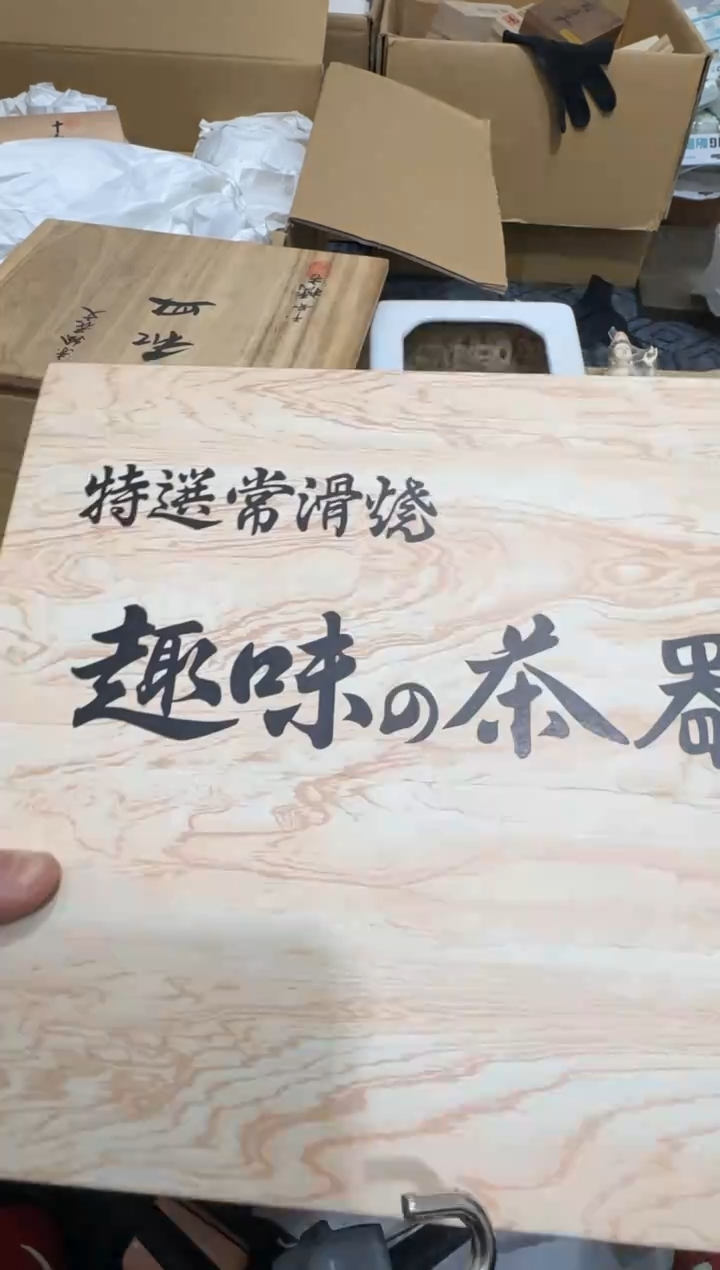 特選常滑焼
趣味の茶器